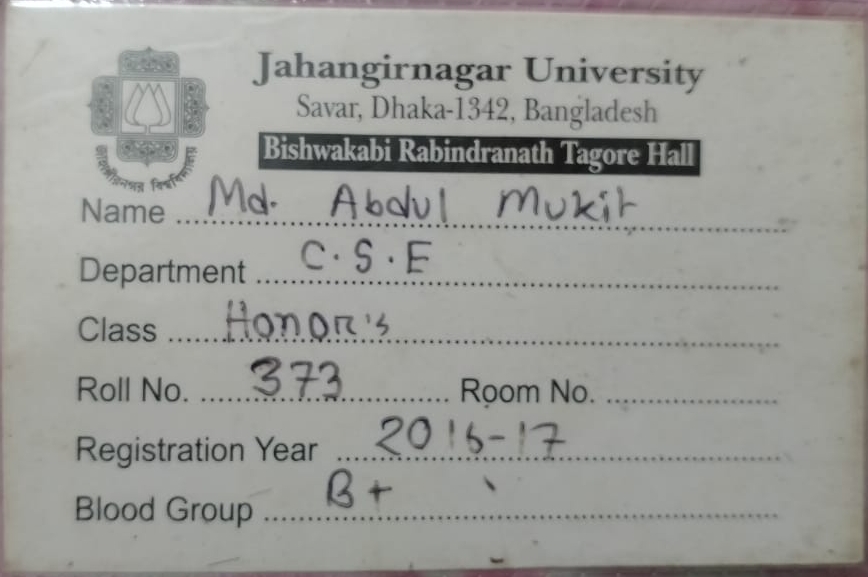 Jahangirnagar University
Savar, Dhaka-1342, Bangladesh
Bishwakabi Rabindranath Tagore Hall
জাহাঙ্গীরনগর বিশ্ববিদ্যালয়
Name Md. Abdul Mukit
Department C.S.E
Class Honor's
Roll No. 373 Room No.
Registration Year 2016-17
Blood Group B+